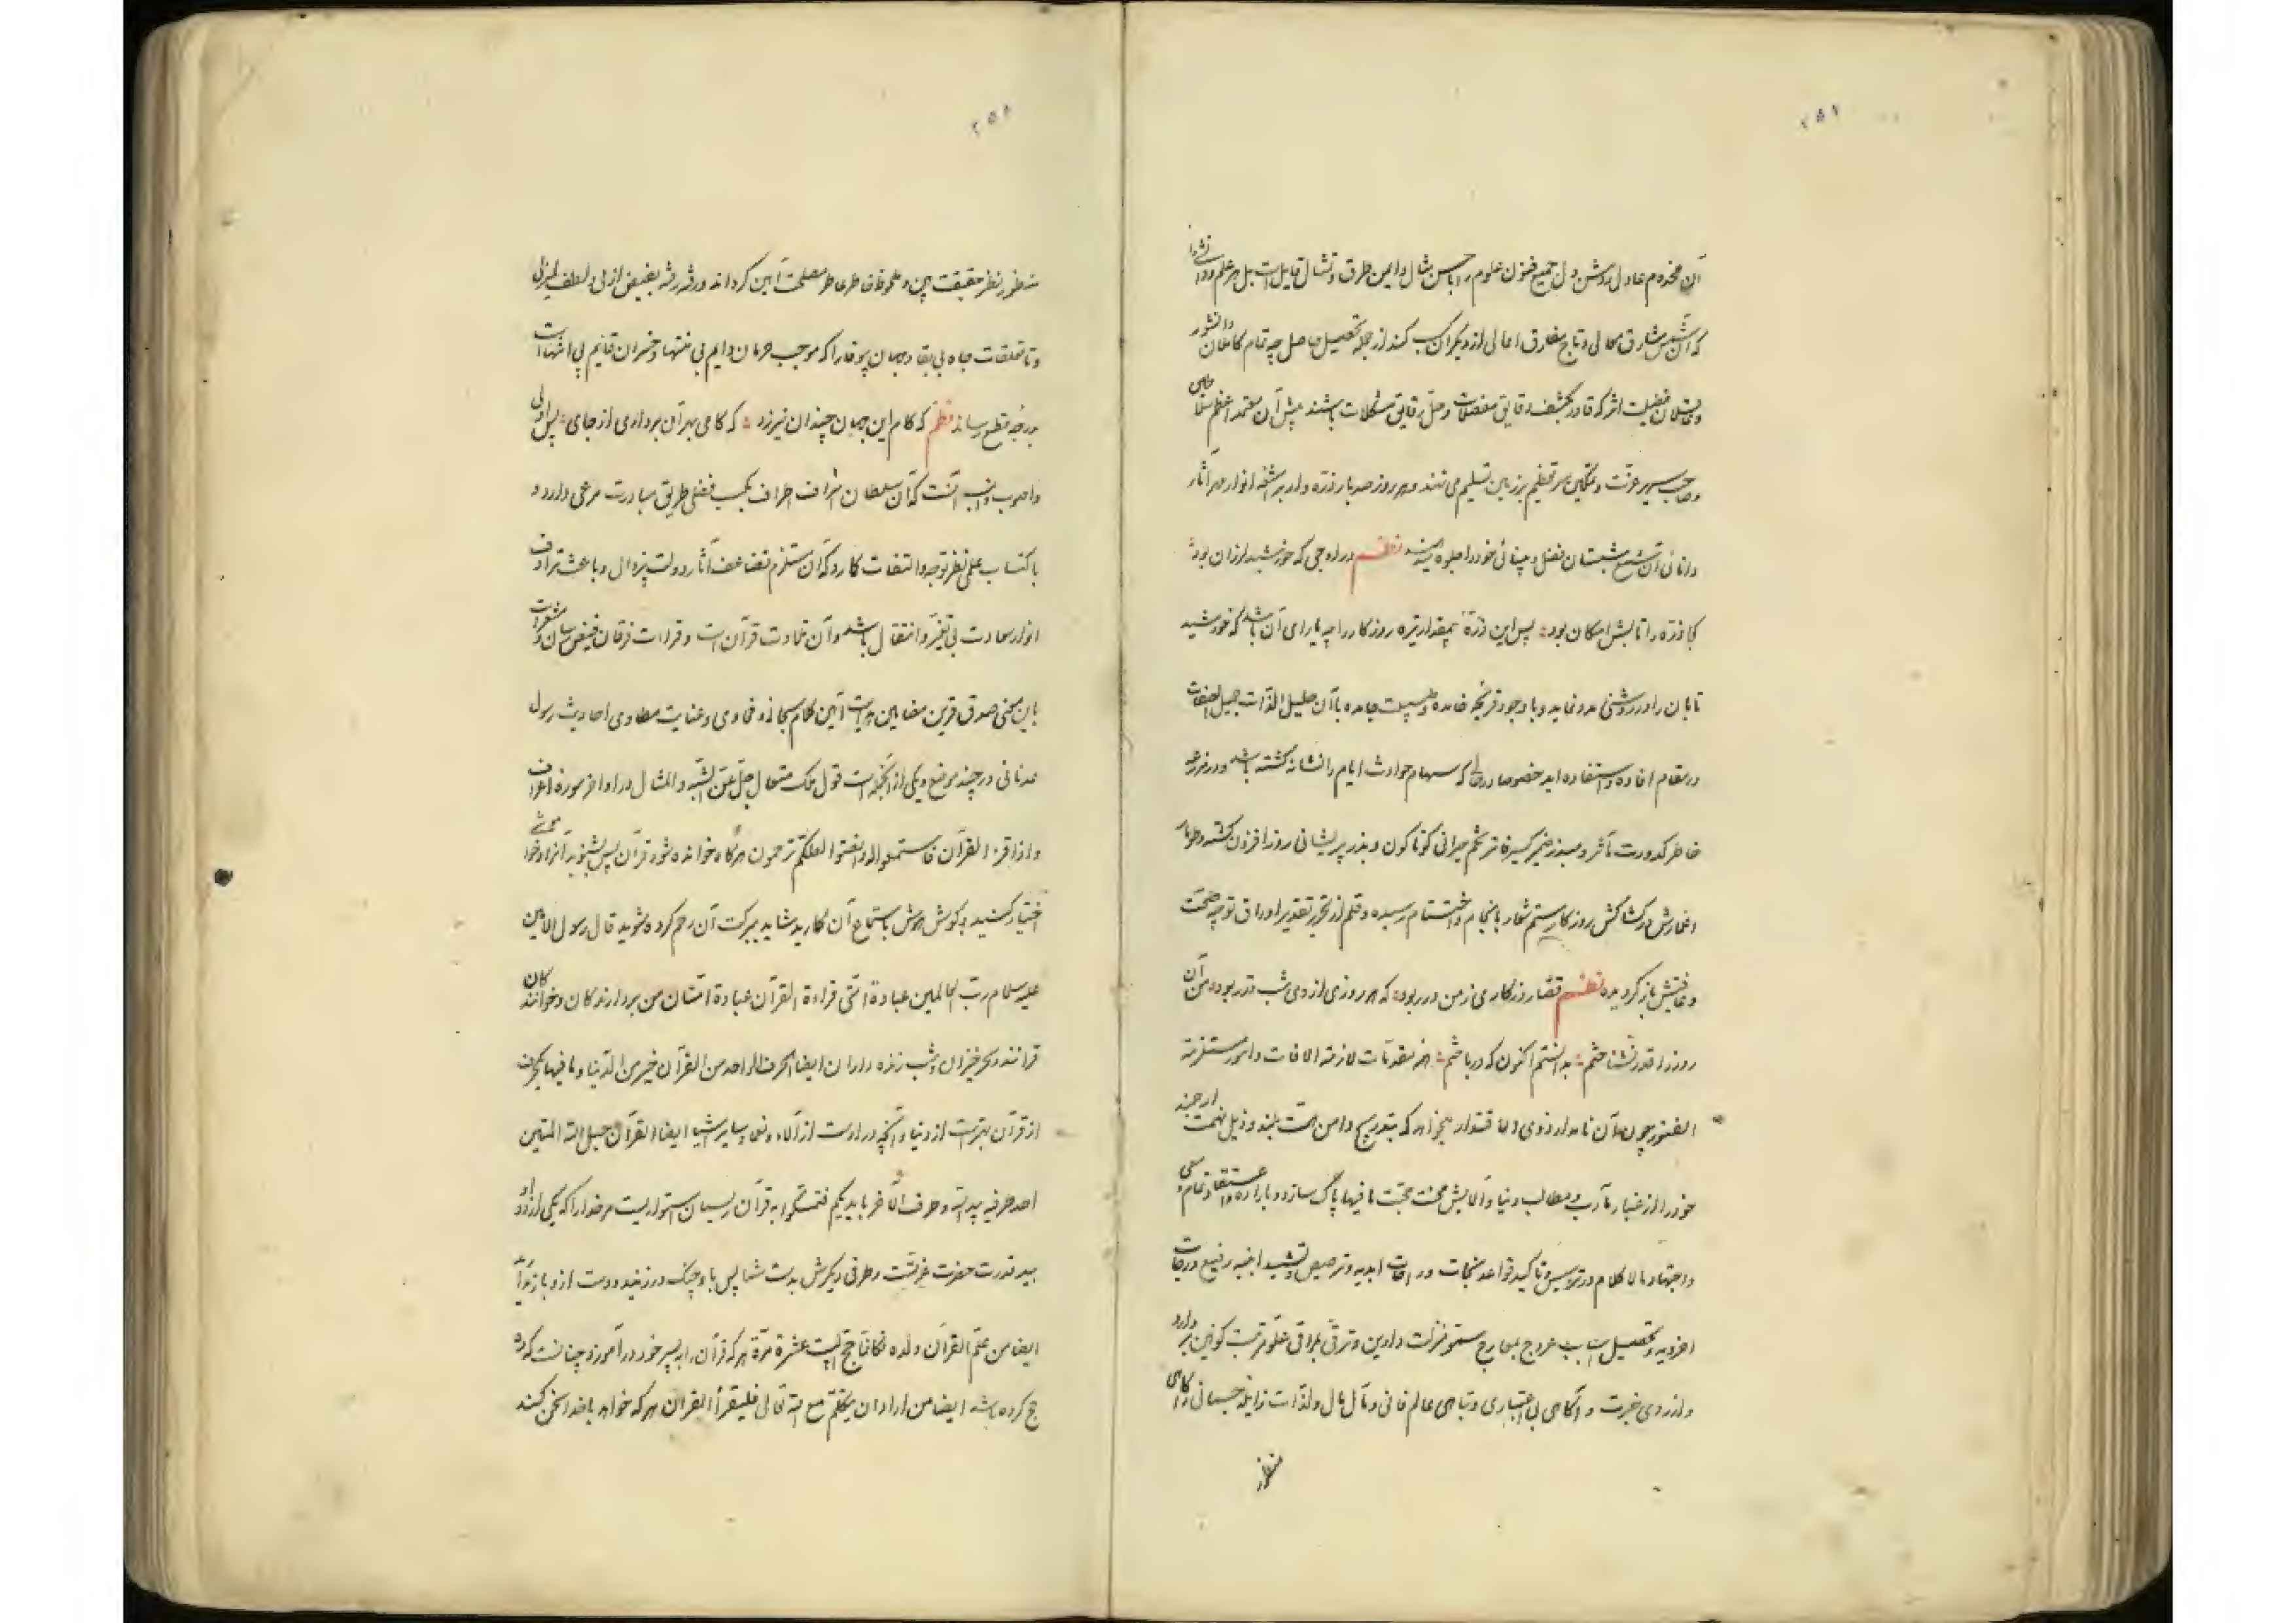 ۲۵۷
آن مخدوم عادل روشن دل جمیع فنون علوم را باحسن مثال و ایمن طرق و تمثال قابل است بل هر علم و دانشی را
که آن شمس مشارق معالی و تاج مفارق اعالی از دیگر کسب کند از جمله تحصیل حاصل چه تمام کاملان دانشور
و فاضلان فضیلت اثر که قادر بکشف دقایق معضلات و حل رقایق مشکلات باشند پیش آن معتمد اعظم سلاطین
و صاحب سریر عزت و تمکین سر تعظیم بر زمین تسلیم می نهند و هر روز صد بار ذره وار بر اشعه انوار مهر آثار
دانائی آن شمع شبستان فضل و بینائی خود را جلوه میدهند نظم در اوجی که خورشید لرزان بود
کجا ذره را تابش امکان بود پس این ذره بیمقدار تیره روزگار را چه یارای آن باشد که خورشید
تابان را در روشنی مدد نماید و با وجود قریحه خامده و طبیعت جامده با آن جلیل الذات جمیل الصفات
در مقام افاده و استفاده آید خصوصا در حالی که سهام حوادث ایام را نشانه گشته باشد و در مزرعه
خاطر کدورت مآثر و مبذر ضمیر کسیر تخم حیرانی گوناگون و بذر پریشانی روزافزون کشته و طومار
اعمارش در کشاکش روزگار ستم شعار بانجام و اختتام رسیده و قلم از تحریر تقدیر اوراق توجه صحت
و عافیتش باز گردیده نظم قضا روزگاری ز من در ربود که هر روزی از وی شب قدر بود من آن
روز را قدر نشناختم بدانستم اکنون که درباختم از مقدمات لازمة الافات و امور مستلزمة
الفتور چون آن نامدار ذوی الاقتدار بخواهد که بتدریج دامن همت بلند و ذیل نهمت ارجمند
خود را از غبار مآرب و مطالب دنیا و آلایش محنت محبت مافیها پاک سازد و با اراده و اعتقاد تمام و سعی
و اجتهاد مالاکلام در تاسیس و تاکید قواعد منجات و راحات ابدیه و ترصیص و تشیید ابنیه رفیع درجات
اخرویه و تحصیل اسباب عروج بمعارج سمو منزلت دارین و ترقی بمراقی علو مرتبت کونین بردارد
و از روی عبرت و آگاهی بی اعتباری و تباهی عالم فانی و مآل مال و لذات زایله جسمانی را کماهی
منظور
۲۵۸
منظور نظر حقیقت بین و ملحوظ خاطر عاطر مصلحت آیین گرداند و رفته رفته بفیض ازلی و لطف لم یزلی
و تا تعلقات جاه بی بقا و جهان بیوفا را که موجب حرمان دایم بی منتها و خسران قایم بی انتهاست
بدرجه قطع رساند نظم که کام این جهان چندان نیرزد که کامی بهر آن برداری از جای پس اولی
و اصوب و انسب آنست که آن سلطان اشراف اطراف بکسب فضلی طریق مبادرت مرعی دارد و
باکتساب علمی نظر توجه و التفات گمارد که آن مستلزم تضاعف آثار دولت بیزوال و باعث ترادف
انوار سعادت بی تغیر و انتقال باشد و آن تلاوت قرآن است و قراءت فرقان فیض رسان و مشعر است
باین معنی صدق قرین مضامین هدایت آیین کلام سبحانی و فحاوی و عنایت مطاوی احادیث رسول
عدنانی در چند موضع و یکی از آنجمله است قول ملک متعال جل عن الشبه و المثال در اواخر سوره اعراف
و اذا قرء القرآن فاستمعوا له و انصتوا لعلکم ترحمون هرگاه خوانده شود قرآن پس بشنوید آنرا و خموشی
اختیار کنید و گوش هوش باستماع آن گمارید شاید ببرکت آن رحم کرده شوید قال رسول الامین
علیه سلام رب العالمین عبادة امتی قراءة القرآن عبادة امتان من بردارندگان و خوانندگان
قرآنند و سحرخیزان و شب زنده داران ایضا الحرف الواحد من القرآن خیر من الدنیا و ما فیها یکحرف
از قرآن بهتر است از دنیا و آنچه در اوست از آلاء و نعم و سایر اشیا ایضا القرآن حبل الله المتین
احد طرفیه بید الله و طرف الآخر بایدیکم فتمسکوا به قرآن ریسمان استواریست مر خدا را که یکی از دو طرف او
بید قدرت حضرت عزتست و طرفی دیگرش بدست شما پس باو چنگ در زنید و دست ازو باز مدارید
ایضا من علم القرآن ولده فکانما حج البیت عشرة مرة هر که قرآن را به پسر خود درآموزد چنانست که ده
حج کرده باشد ایضا من اراد ان یتکلم مع الله تعالی فلیقرأ القرآن هر که خواهد باخدا سخن کند